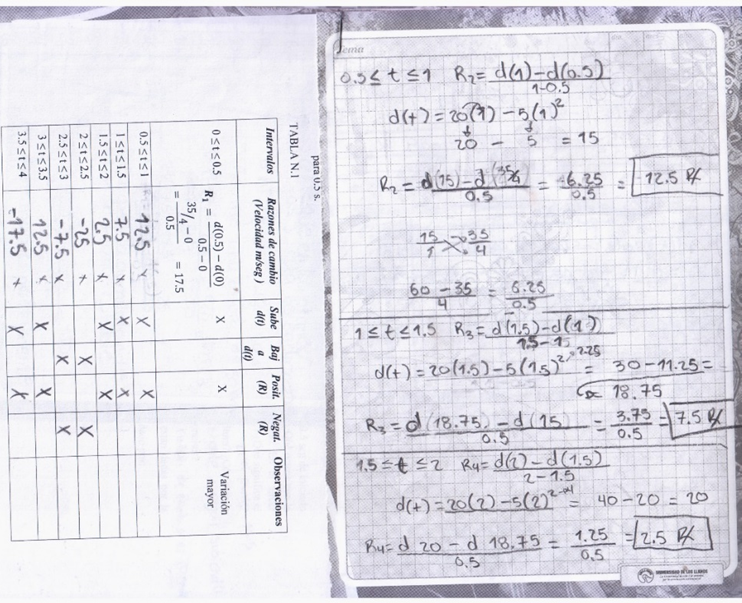 para 0.5 s.
TABLA N.1
Intervalos Razones de cambio (Velocidad m/seg ) Sube d(t) Baj a d(t) Posit. (R) Negat. (R) Observaciones
0 ≤ t ≤ 0.5 R₁ = d(0.5) − d(0) / 0.5 − 0 X X Variación mayor
= 35/4 − 0 / 0.5 = 17.5
0.5 ≤ t ≤ 1 12.5 x X X
1 ≤ t ≤ 1.5 7.5 x X X
1.5 ≤ t ≤ 2 2.5 x X X
2 ≤ t ≤ 2.5 -25 x X X
2.5 ≤ t ≤ 3 -7.5 x X X
3 ≤ t ≤ 3.5 12.5 x X X
3.5 ≤ t ≤ 4 -17.5 x X X
Tema
0.5 ≤ t ≤ 1 R₂ = d(1) − d(0.5) / 1-0.5
d(t) = 20(1) − 5(1)²
20 − 5 = 15
R₂ = d(15) − d(35/4) / 0.5 = 6.25 / 0.5 = 12.5 R/
15/1 35/4
60 − 35 / 4 = 6.25 / 0.5
1 ≤ t ≤ 1.5 R₃ = d(1.5) − d(1) / 1.5 − 1
d(t) = 20(1.5) − 5(1.5)² 2.25 = 30 − 11.25 =
18.75
R₃ = d(18.75) − d(15) / 0.5 = 3.75 / 0.5 = 7.5 R/
1.5 ≤ t ≤ 2 R4 = d(2) − d(1.5) / 2 − 1.5
d(t) = 20(2) − 5(2)² = 40 − 20 = 20
R4 = d 20 − d 18.75 / 0.5 = 1.25 / 0.5 = 2.5 R/
UNIVERSIDAD DE LOS LLANOS